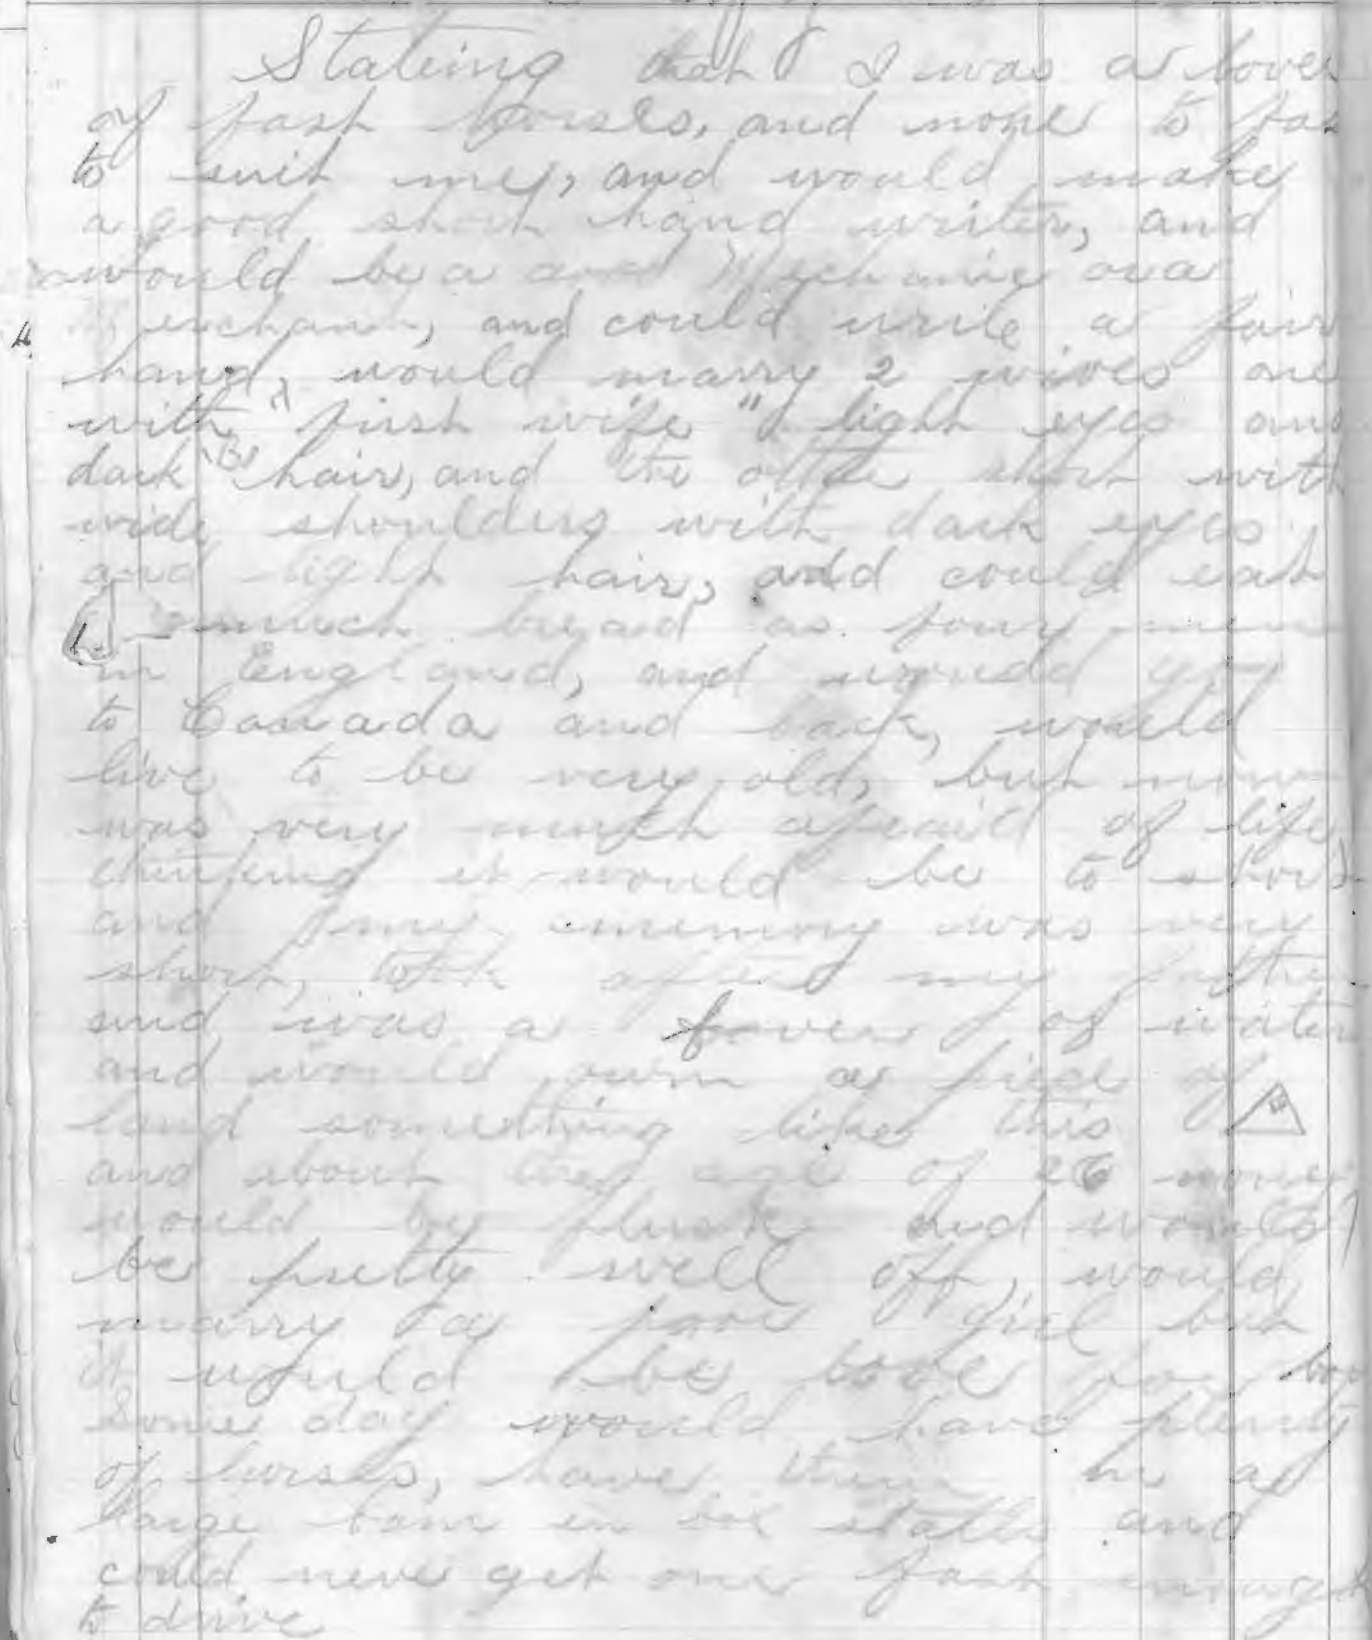 Stateing that I was a lover
of fast horses, and none to fas
to suit me, and would make
a good short hand writer, and
would be a good Mechanic or a
merchant, and could write a fair
hand, would marry 2 wives one
with "first wife" light eyes and
dark hair, and the other short with
wide shoulders with dark eyes
and light hair, and could eat
as much bread as four men
in England, and would go
to Canada and back, would
live to be very old, but now
was very much afraid of life
thinking it would be to short
and my memory was very
short, took after my father
and was a lover of water
and would own a piece of
land something like this
and about the age of 26
would be and would
be pretty well off, would
marry a poor girl but
it would be love for
Some day would have plenty
of horses, have them in a
large barn in box stalls and
could never get one fast enough
to drive